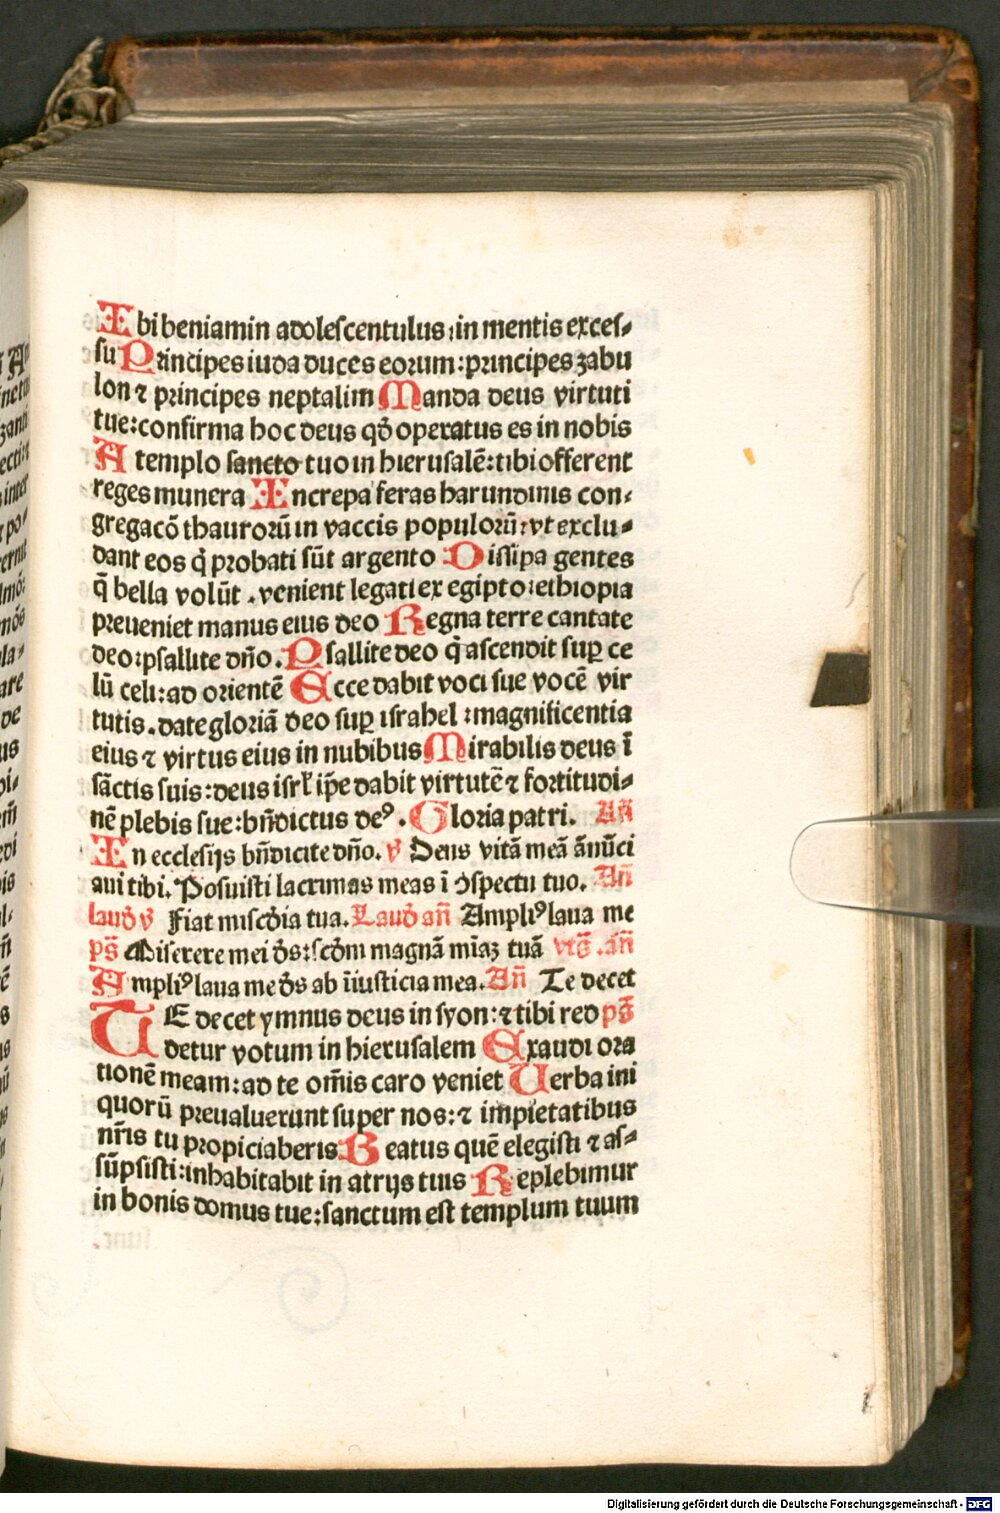 Ibi beniamin adolescentulus: in mentis exces⸗
su Principes iuda duces eorum: principes zabu
lon ⁊ principes neptalim Manda deus virtuti
tue: confirma hoc deus qđ operatus es in nobis
A templo sancto tuo in hierusalē: tibi offerent
reges munera Increpa feras harundinis con⸗
gregacō thaurorū in vaccis populorū: vt exclu⸗
dant eos q̇ probati sūt argento Dissipa gentes
q̄ bella volūt . venient legati ex egipto: ethiopia
preueniet manus eius deo Regna terre cantate
deo: psallite dño. Psallite deo q̇ ascendit suꝑ ce
lū celi: ad orientē Ecce dabit voci sue vocē vir
tutis. date gloriā deo suꝑ israhel: magnificentia
eius ⁊ virtus eius in nubibus Mirabilis deus ī
sāctis suis: deus isrł ip̄e dabit virtutē ⁊ fortitudi⸗
nē plebis sue: bn̄dictus deꝰ. Gloria patri. Añ
In ecclesijs bn̄dicite dño. v̄ Deus vitā meā ānūci
aui tibi. Posuisti lacrimas meas ī ꝯspectu tuo. Añ
laud̄ v̄ Fiat misc̄dia tua. Laud̄ añ Ampliꝰ laua me
ps̄ Miserere mei d̄s: sc̄dm magnā mīaꝫ tuā vtꝫ .añ
Ampliꝰ laua me d̄s ab īiusticia mea. Añ Te decet
TE decet ymnus deus in syon: ⁊ tibi red ps̄
detur votum in hierusalem Exaudi ora
tionē meam: ad te om̄is caro veniet Uerba ini
quorū preualuerunt super nos: ⁊ impietatibus
nr̄is tu propiciaberis Beatus quē elegisti ⁊ as⸗
sūpsisti: inhabitabit in atrijs tuis Replebimur
in bonis domus tue: sanctum est templum tuum
Digitalisierung gefördert durch die Deutsche Forschungsgemeinschaft - DFG